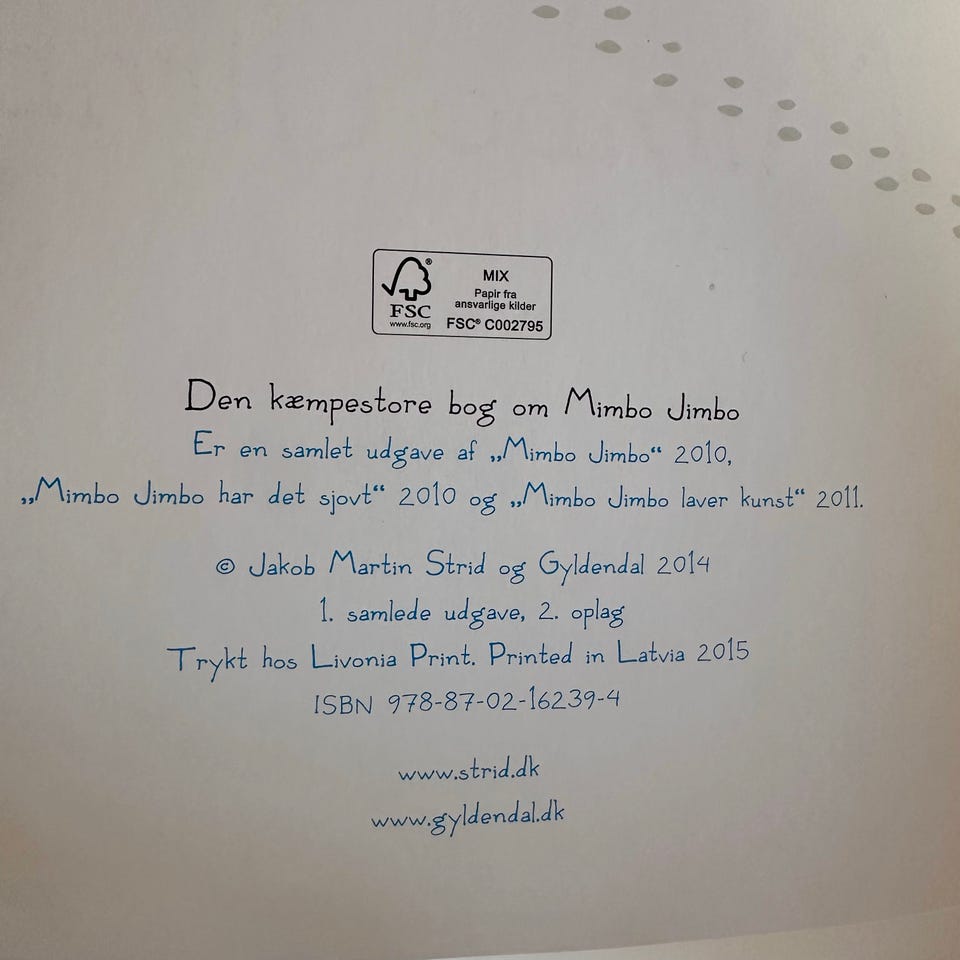 MIX
Papir fra
ansvarlige kilder
FSC® C002795
®
FSC
www.fsc.org
Den kæmpestore bog om Mimbo Jimbo
Er en samlet udgave af „Mimbo Jimbo“ 2010,
„Mimbo Jimbo har det sjovt“ 2010 og „Mimbo Jimbo laver kunst“ 2011.
© Jakob Martin Strid og Gyldendal 2014
1. samlede udgave, 2. oplag
Trykt hos Livonia Print. Printed in Latvia 2015
ISBN 978-87-02-16239-4
www.strid.dk
www.gyldendal.dk